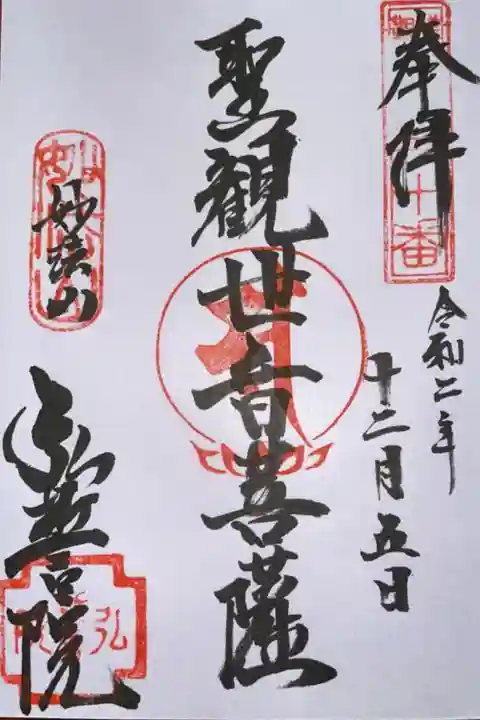 奉拝
十番
令和二年
十二月五日
聖観世音菩薩
弘善院
弘